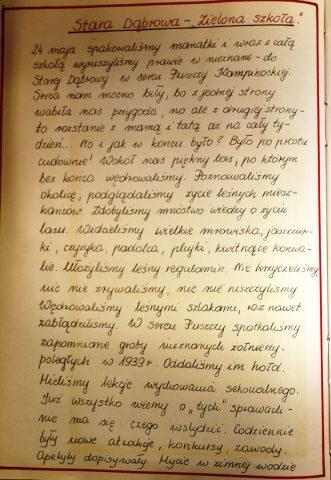 Stara Dąbrowa - „Zielona szkoła”
24 maja spakowaliśmy manatki i wraz z całą
szkołą wyruszyliśmy prawie w nieznane - do
Starej Dąbrowy w sercu Puszczy Kampinoskiej.
Serca nam mocno biły, bo z jednej strony
wabiła nas przygoda, no ale z drugiej strony -
to rozstanie z mamą i tatą aż na cały ty-
dzień... No i jak w końcu było? Było po prostu
cudownie! Wokół nas piękny las, po którym
bez końca wędrowaliśmy. Poznawaliśmy
okolicę, podglądaliśmy życie leśnych miesz-
kańców. Zdobyliśmy mnóstwo wiedzy o życiu
lasu. Widzieliśmy wielkie mrowiska, jaszczur-
ki, czyżyka, padalca, pliszki, kwitnące konwa-
lie. Ułożyliśmy leśny regulamin. Nie krzyczeliśmy
nic nie zrywaliśmy, nic nie niszczyliśmy
Wędrowaliśmy leśnymi szlakami, raz nawet
zabłądziliśmy. W sercu Puszczy spotkaliśmy
zapomniane groby nieznanych żołnierzy
poległych w 1939 r. Oddaliśmy im hołd.
Mieliśmy lekcje wychowania seksualnego.
Już wszystko wiemy o „tych” sprawach -
nie ma się czego wstydzić. Codziennie
były nowe atrakcje, konkursy, zawody.
Apetyty dopisywały. Mycie w zimnej wodzie